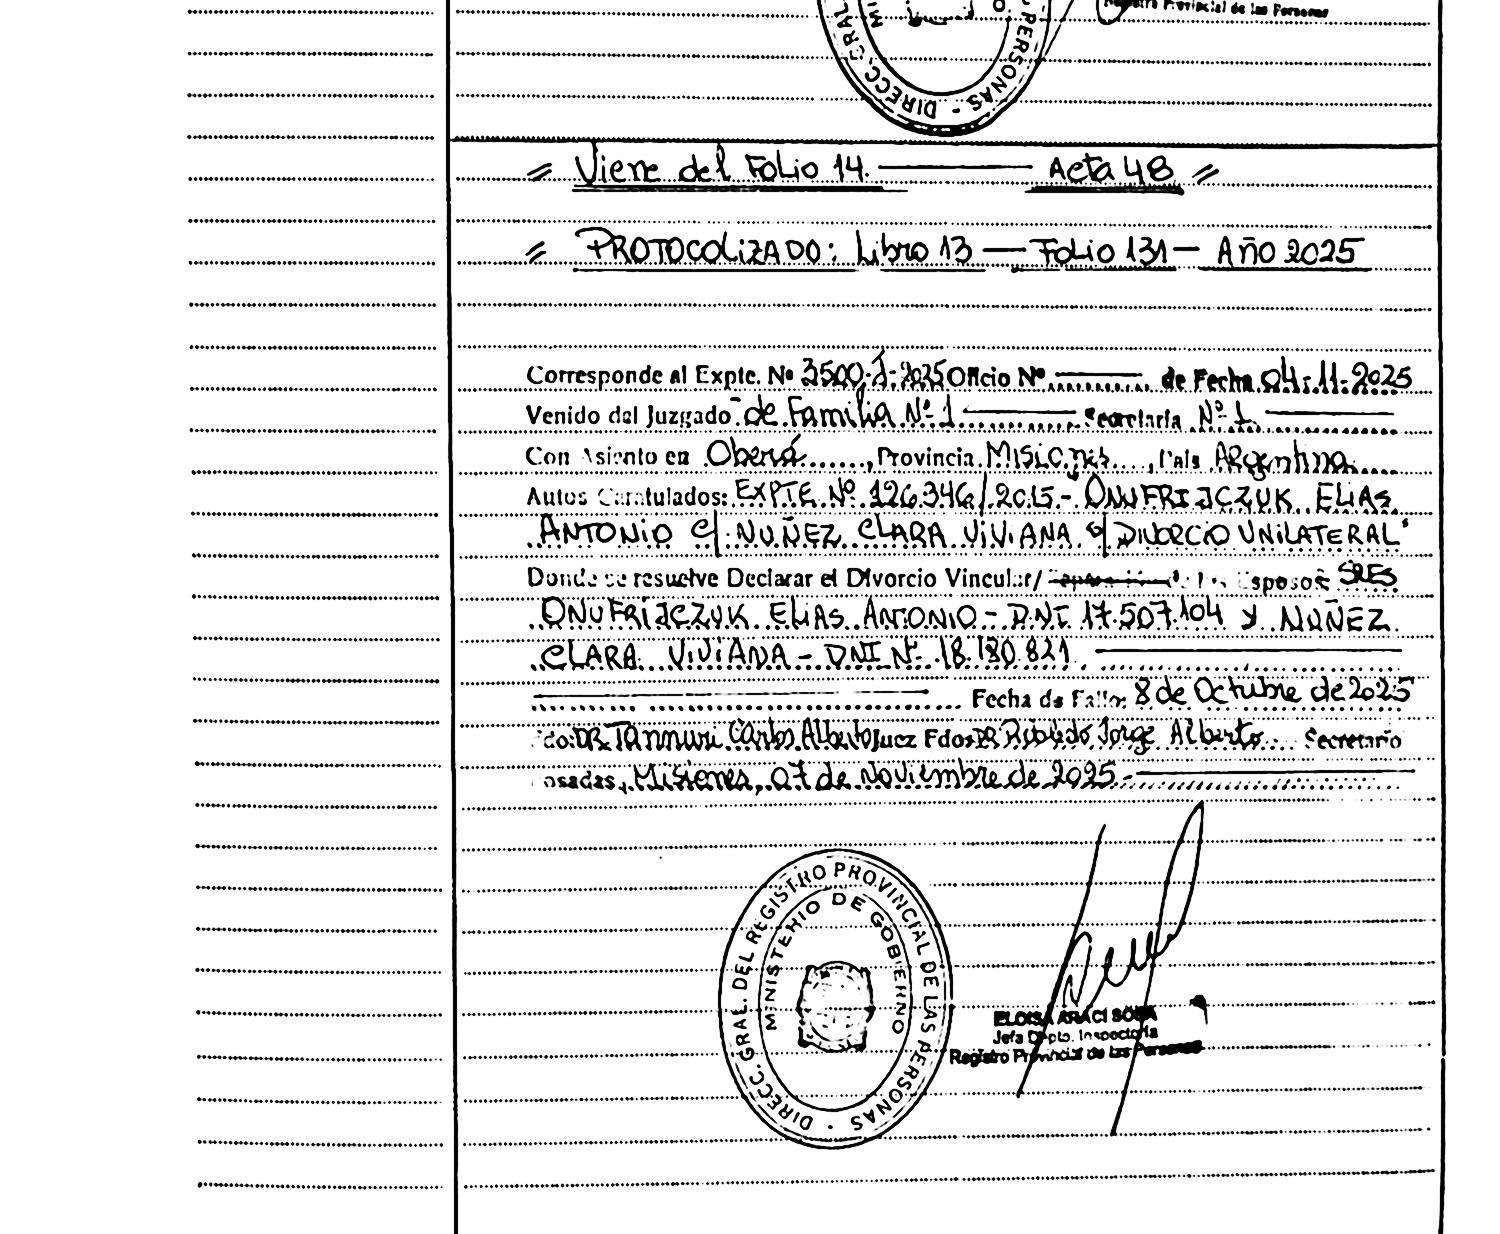 DIRECC. GRAL PERSONAS
Registro Provincial de las Personas
Viene del Folio 14. Acta 48
PROTOCOLIZADO: Libro 13 — Folio 131 — Año 2025
Corresponde al Expte. Nº 3500-J-2025 Oficio Nº de Fecha 04-11-2025
Venido del Juzgado de Familia Nº 1 Secretaría Nº 1
Con Asiento en Oberá, Provincia Misiones, País Argentina
Autos Caratulados: EXPTE Nº 126.346/2015-"ONUFRIJCZUK ELIAS
ANTONIO C/ NUÑEZ CLARA VIVIANA S/ DIVORCIO UNILATERAL"
Donde se resuelve Declarar el Divorcio Vincular/ Esposos SRES
ONUFRIJCZUK ELIAS ANTONIO - DNI 17.507.104 y NUÑEZ
CLARA VIVIANA - DNI Nº 18.180.821
Fecha de Fallo: 8 de Octubre de 2025
do: DR. Tannuri Carlos Alberto Juez Fdo: DR Jorge Alberto Secretario
osadas, Misiones, 07 de Noviembre de 2025.-
DIRECC. GRAL. DEL REGISTRO PROVINCIAL DE LAS PERSONAS
MINISTERIO DE GOBIERNO
ELOISA ARACI SOSA
Jefa Dpto. Inspectoría
Registro Provincial de las Personas